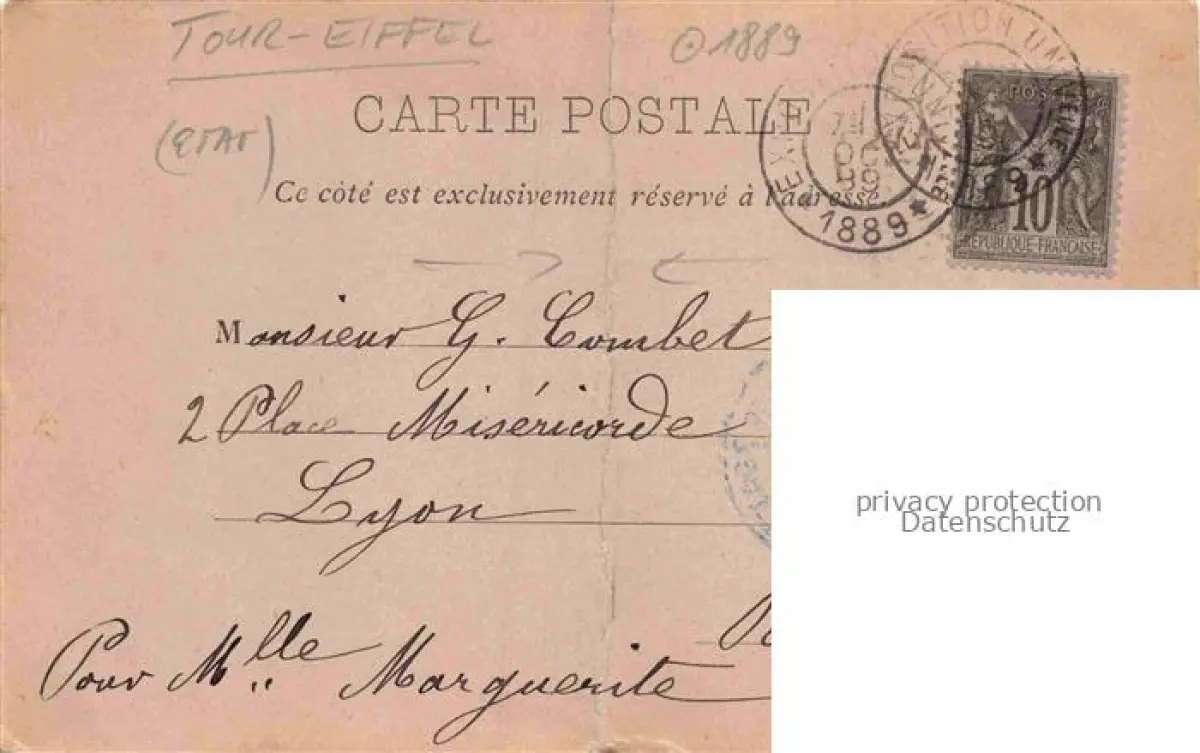 TOUR-EIFFEL
1889
CARTE POSTALE
(ETAT)
Ce côté est exclusivement réservé à l'adresse
EXPOSITION UNIVERSELLE
1889
POSTES
10
REPUBLIQUE FRANÇAISE
Monsieur G. Combet
2 Place Miséricorde
Lyon
Pour Mlle Marguerite
privacy protection
Datenschutz